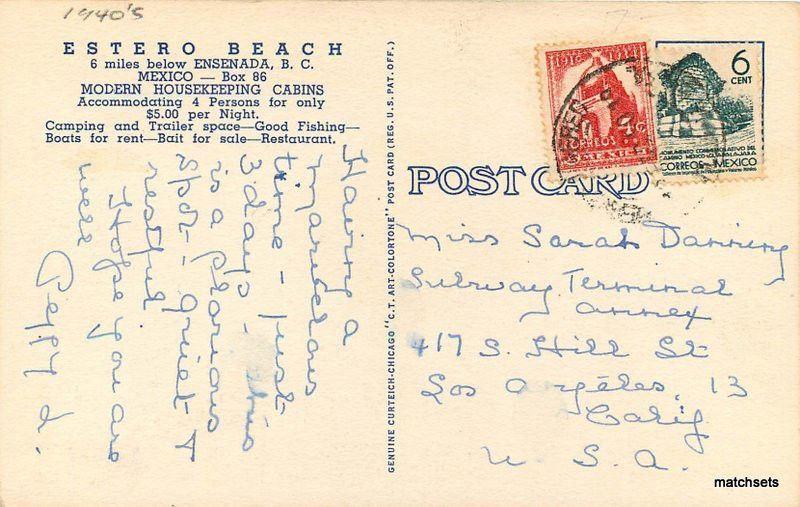 1940's
ESTERO BEACH
6 miles below ENSENADA, B. C.
MEXICO — Box 86
MODERN HOUSEKEEPING CABINS
Accommodating 4 Persons for only
$5.00 per Night.
Camping and Trailer space—Good Fishing—
Boats for rent—Bait for sale—Restaurant.
Having a
marvelous
time - just
3 days - this
is a glorious
spot - quiet &
restful
Hope you are
well
GENUINE CURTEICH-CHICAGO "C. T. ART-COLORTONE" POST CARD (REG. U. S. PAT. OFF.)
POST CARD
6
CENT
CORREOS MEXICO
CORREOS
MEXICO
Miss Sarah Danning
Subway Terminal
annex
417 S. Hill St
Los Angeles. 13
Calif
U. S. A.
matchsets